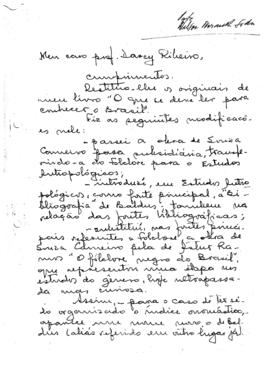 Meu caro prof. Darcy Ribeiro,
cumprimentos.
Restituo-lhe os originais de
meu livro "O que se deve ler para
conhecer o Brasil".
Fiz as seguintes modificações
nele:
- passei a obra de Souza
Carneiro para subsidiária, transferindo-a
do Folclore para o Estudos
Antropológicos;
- introduzi, em Estudos Antropológicos,
como fonte principal, a Bibliografia
de Baldus; também na
relação das fontes bibliográficas;
- substituí, nas fontes principais
referentes a Folclore, a obra de
Souza Carneiro pela de Artur Ramos
"O folclore negro do Brasil",
que representou uma etapa nos
estudos do gênero, hoje ultrapassada
mas curiosa.
Assim, - para o caso de ter sido
organizado o índice onomástico,
aparece um nome novo, o de Baldus
(aliás referido em outro lugar já)